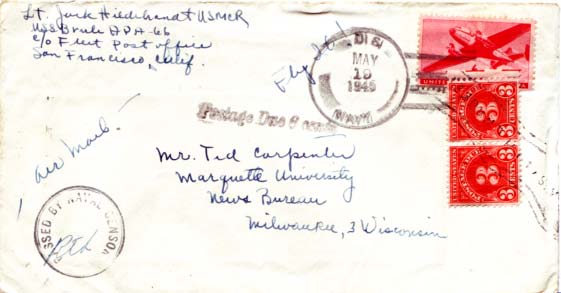 Lt. Jack Hildebrandt USMCR
USS Brule APA-66
c/o Fleet Post Office
San Francisco, Calif.
Fly It!
MAY
19
1945
NAVY
UNITED
Postage Due 6 cents
Air Mail!
Mr. Ted Carpenter
Marquette University
News Bureau
Milwaukee, 3 Wisconsin
PASSED BY NAVAL CENSOR
3
CENTS
3
CENTS